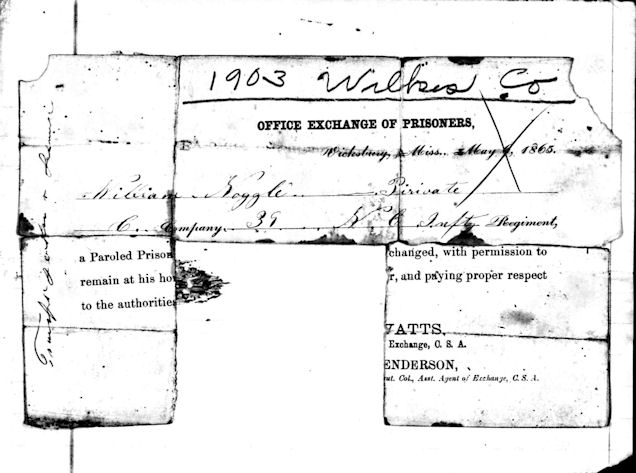 1903 Wilkes Co
OFFICE EXCHANGE OF PRISONERS,
Vicksburg, Miss. May 1865.
William Noggle Private
C. Company 39 N C Infty Regiment,
a Paroled Prison
changed, with permission to
remain at his ho
r, and paying proper respect
to the authorities
WATTS,
Exchange, C. S. A.
ENDERSON,
eut. Col., Asst. Agent of Exchange, C. S. A.